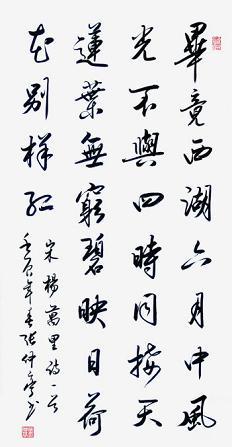 畢竟西湖六月中風
光不與四時同接天
蓮葉無窮碧映日荷
花别样红
宋楊萬里詩一首
年春张仲亭书